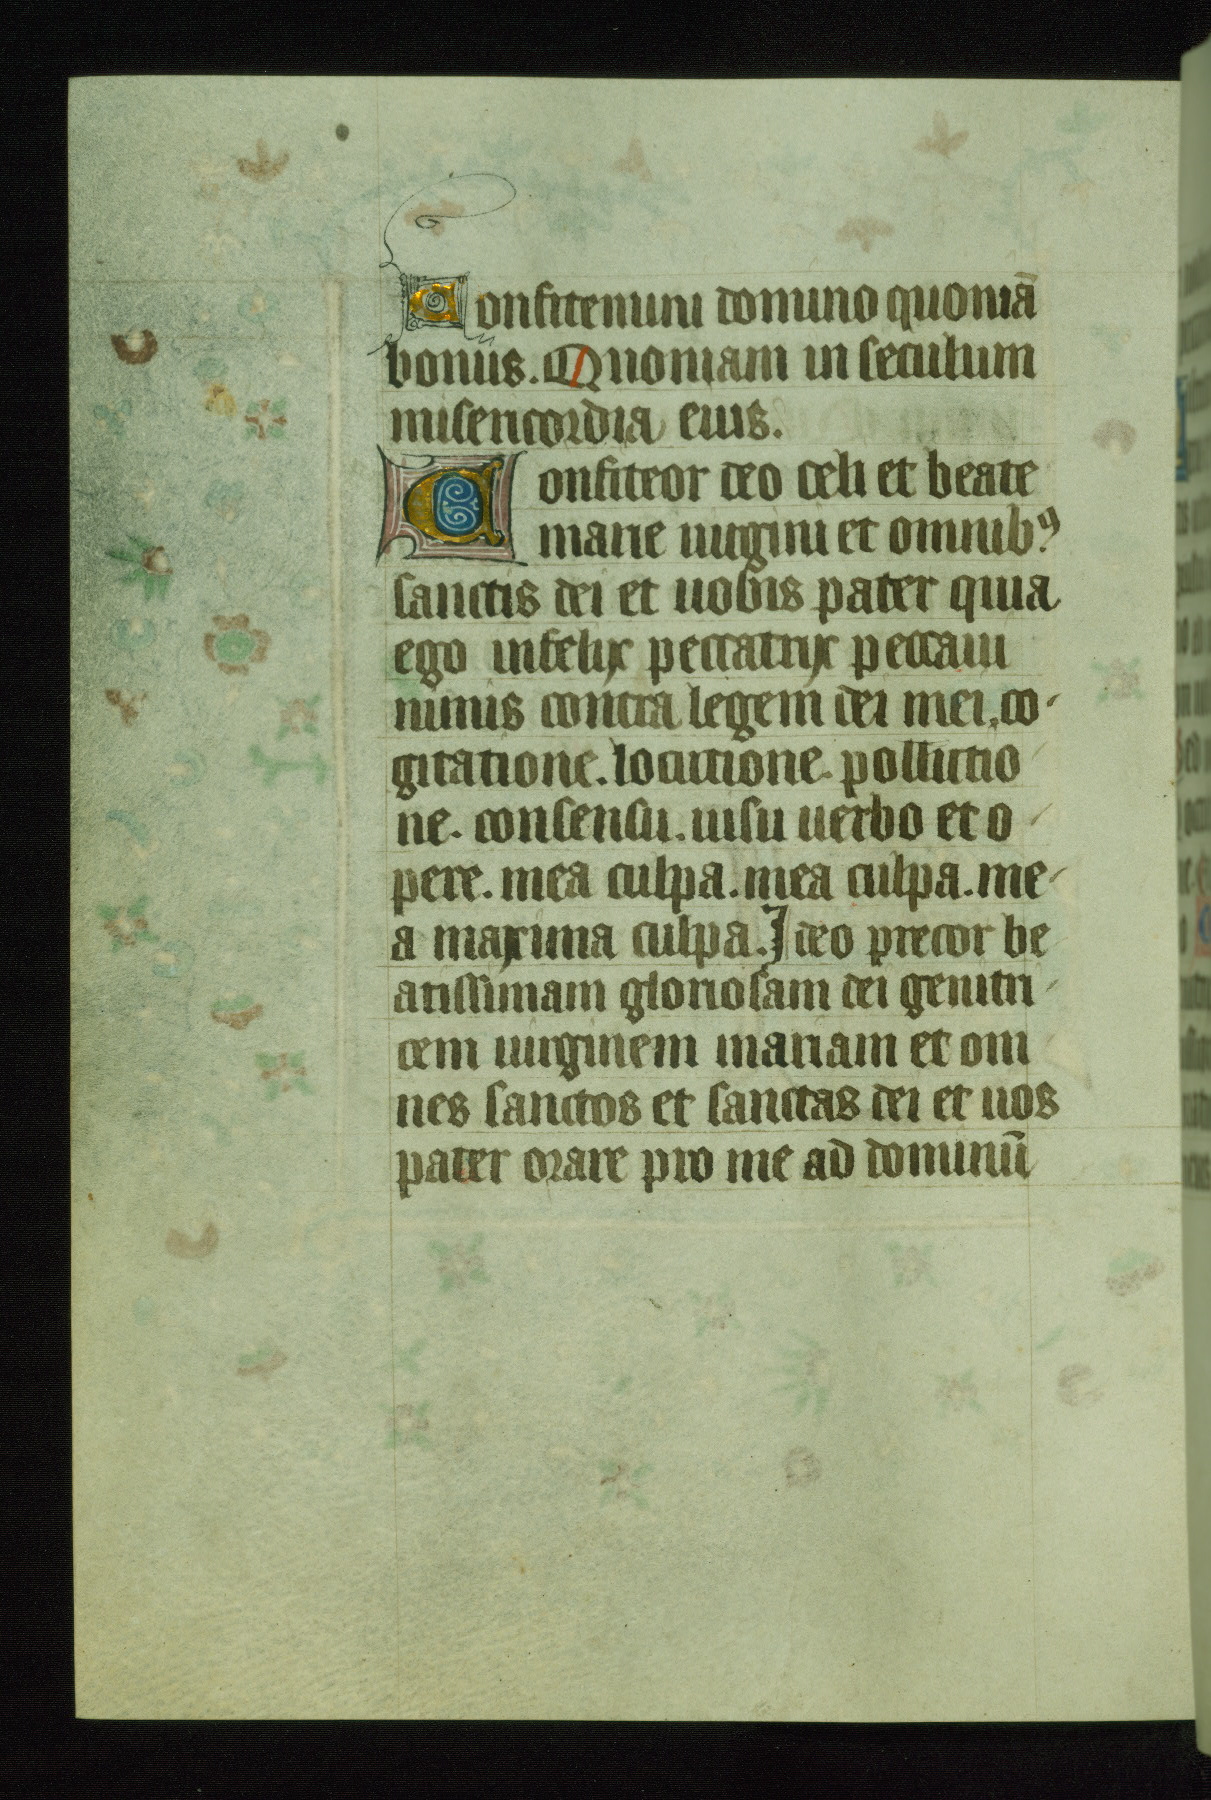 Confitemini domino quoniã
bonus. Quoniam in seculum
misericordia eius.
Confiteor deo celi et beate
marie uirgini et omnibꝰ
sanctis dei et uobis pater quia
ego infelix peccatrix peccaui
nimis contra legem dei mei, co-
gitatione. locutione. pollutio
ne. consensu. uisu uerbo et o-
pere. mea culpa. mea culpa. me-
a maxima culpa. Ideo precor be
atissimam gloriosam dei genitri-
cem uirginem mariam et om
nes sanctos et sanctas dei et uos
pater orare pro me ad dominū